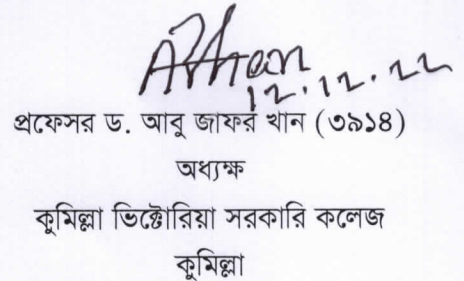 12.12.22
প্রফেসর ড. আবু জাফর খান (৩৯১৪)
অধ্যক্ষ
কুমিল্লা ভিক্টোরিয়া সরকারি কলেজ
কুমিল্লা